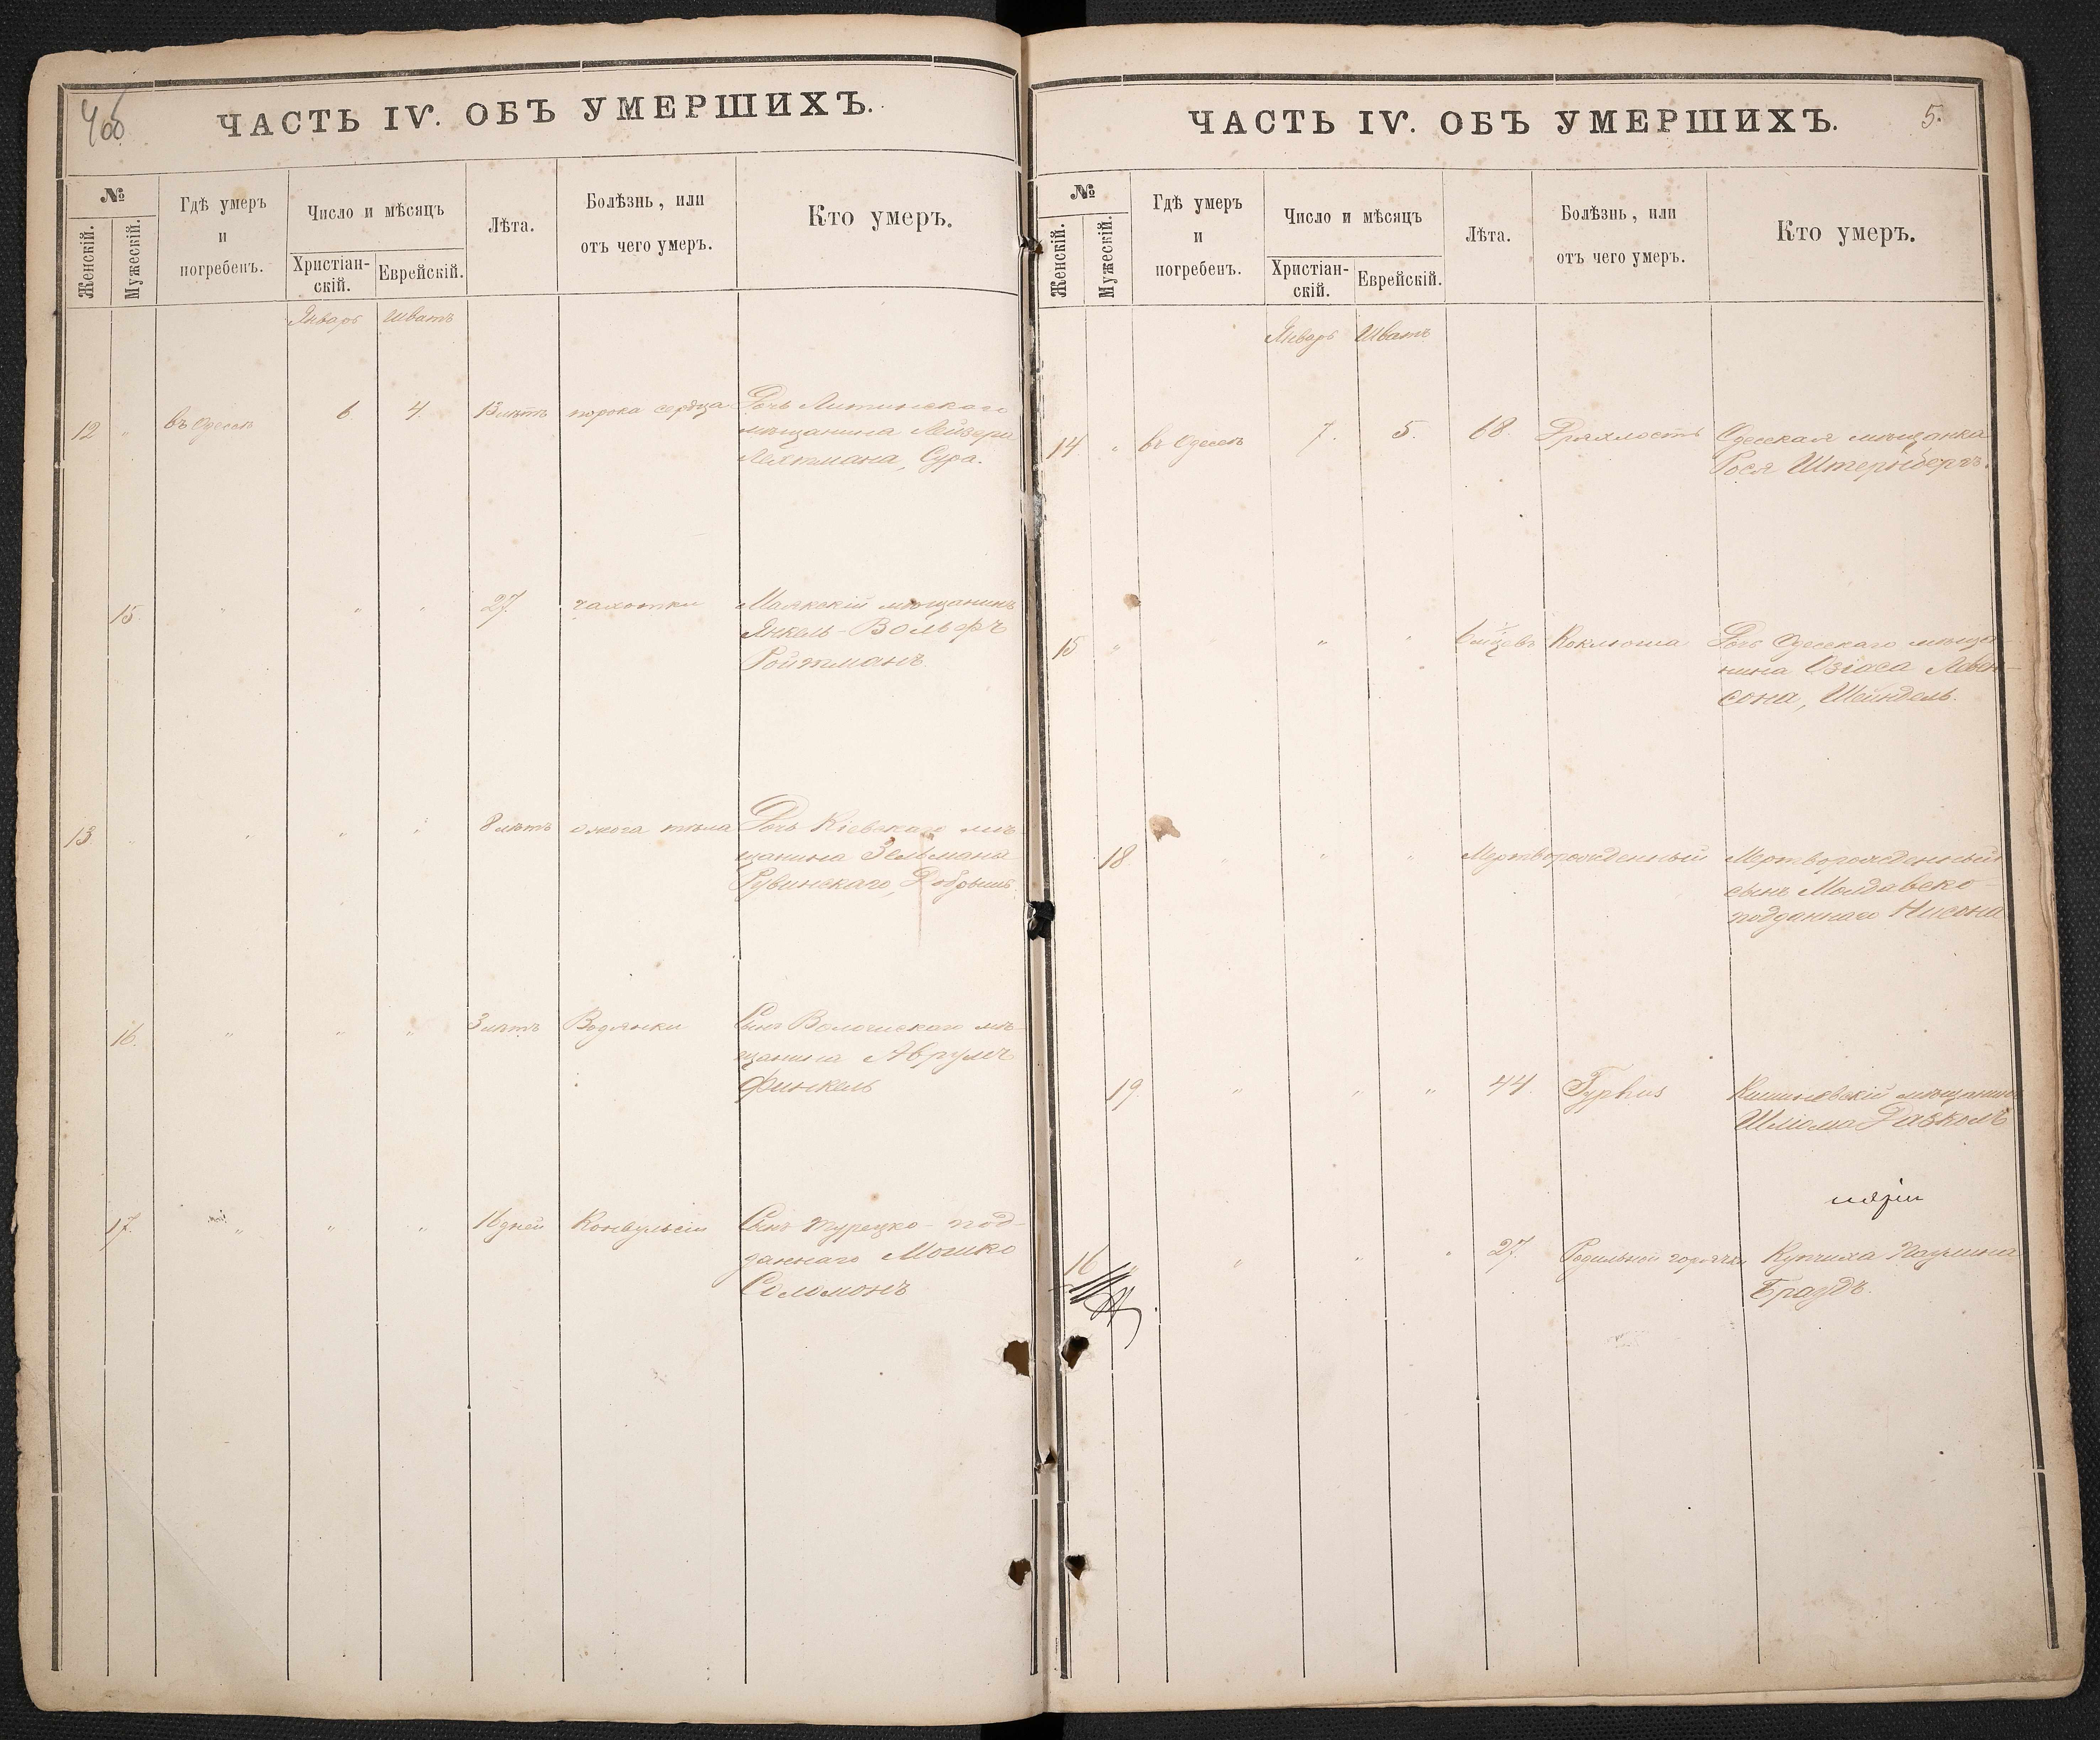 4об
ЧАСТЬ IV. ОБЪ УМЕРШИХЪ.
№
Женскій.
Мужескій.
Гдѣ умеръ
и
погребенъ.
Число и мѣсяцъ
Христіан-
скій.
Еврейскій.
Лѣта.
Болѣзнь, или
отъ чего умеръ.
Кто умеръ.
Январь Шватъ
12 " въ Одессѣ 6 4. 13 лѣтъ порока сердца Дочь Литинскаго
мѣщанина Лейзера
Сура.
15. " " " 27. чахотки Маякскій мѣщанинъ
Янкель-Вольфъ
Ройтманъ.
13 " " " " 8 лѣтъ ожога тѣла Дочь Кіевскаго мѣ-
щанина Зельмана
Рувинскаго, Добрышъ.
16. " " " 3 лѣтъ Водянки Сынъ Волочискаго мѣ-
щанина Аврумъ
Финкель
17. " " " 16 дней Конвульсіи Сынъ турецко-под-
даннаго Мошко
Соломонъ
ЧАСТЬ IV. ОБЪ УМЕРШИХЪ.
5.
№
Женскій.
Мужескій.
Гдѣ умеръ
и
погребенъ.
Число и мѣсяцъ
Христіан-
скій.
Еврейскій.
Лѣта.
Болѣзнь, или
отъ чего умеръ.
Кто умеръ.
Январь Шватъ
14 " въ Одессѣ 7. 5. 68. Дряхлость Одесская мѣщанка
Рося Штернбергъ.
15 " " " " Коклюша Дочь Одесскаго мѣща-
нина Озіаса Левен-
сона, Шейндель.
18 " " " Мертворожденный Мертворожденный
сынъ Молдавско-
подданнаго Нисона
19. " " " 44. Typhus Кишиновскій мѣщанинъ
Шлома
16 " " " " 27. Родильной горячки Купчиха Паулина
Браудъ.